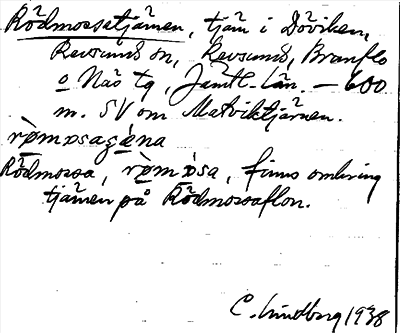 Rödmossetjärnen, tjärn i Döviken,
Revsunds sn, Revsunds, Brunflo
o Näs tg, Jämtl. län. — 600
m. SV om Matviktjärnen.
rø̀mosagǽna
Rödmossa, rø̀mòsa, finns omkring
tjärnen på Rödmossaflon.
C. Lindberg 1938